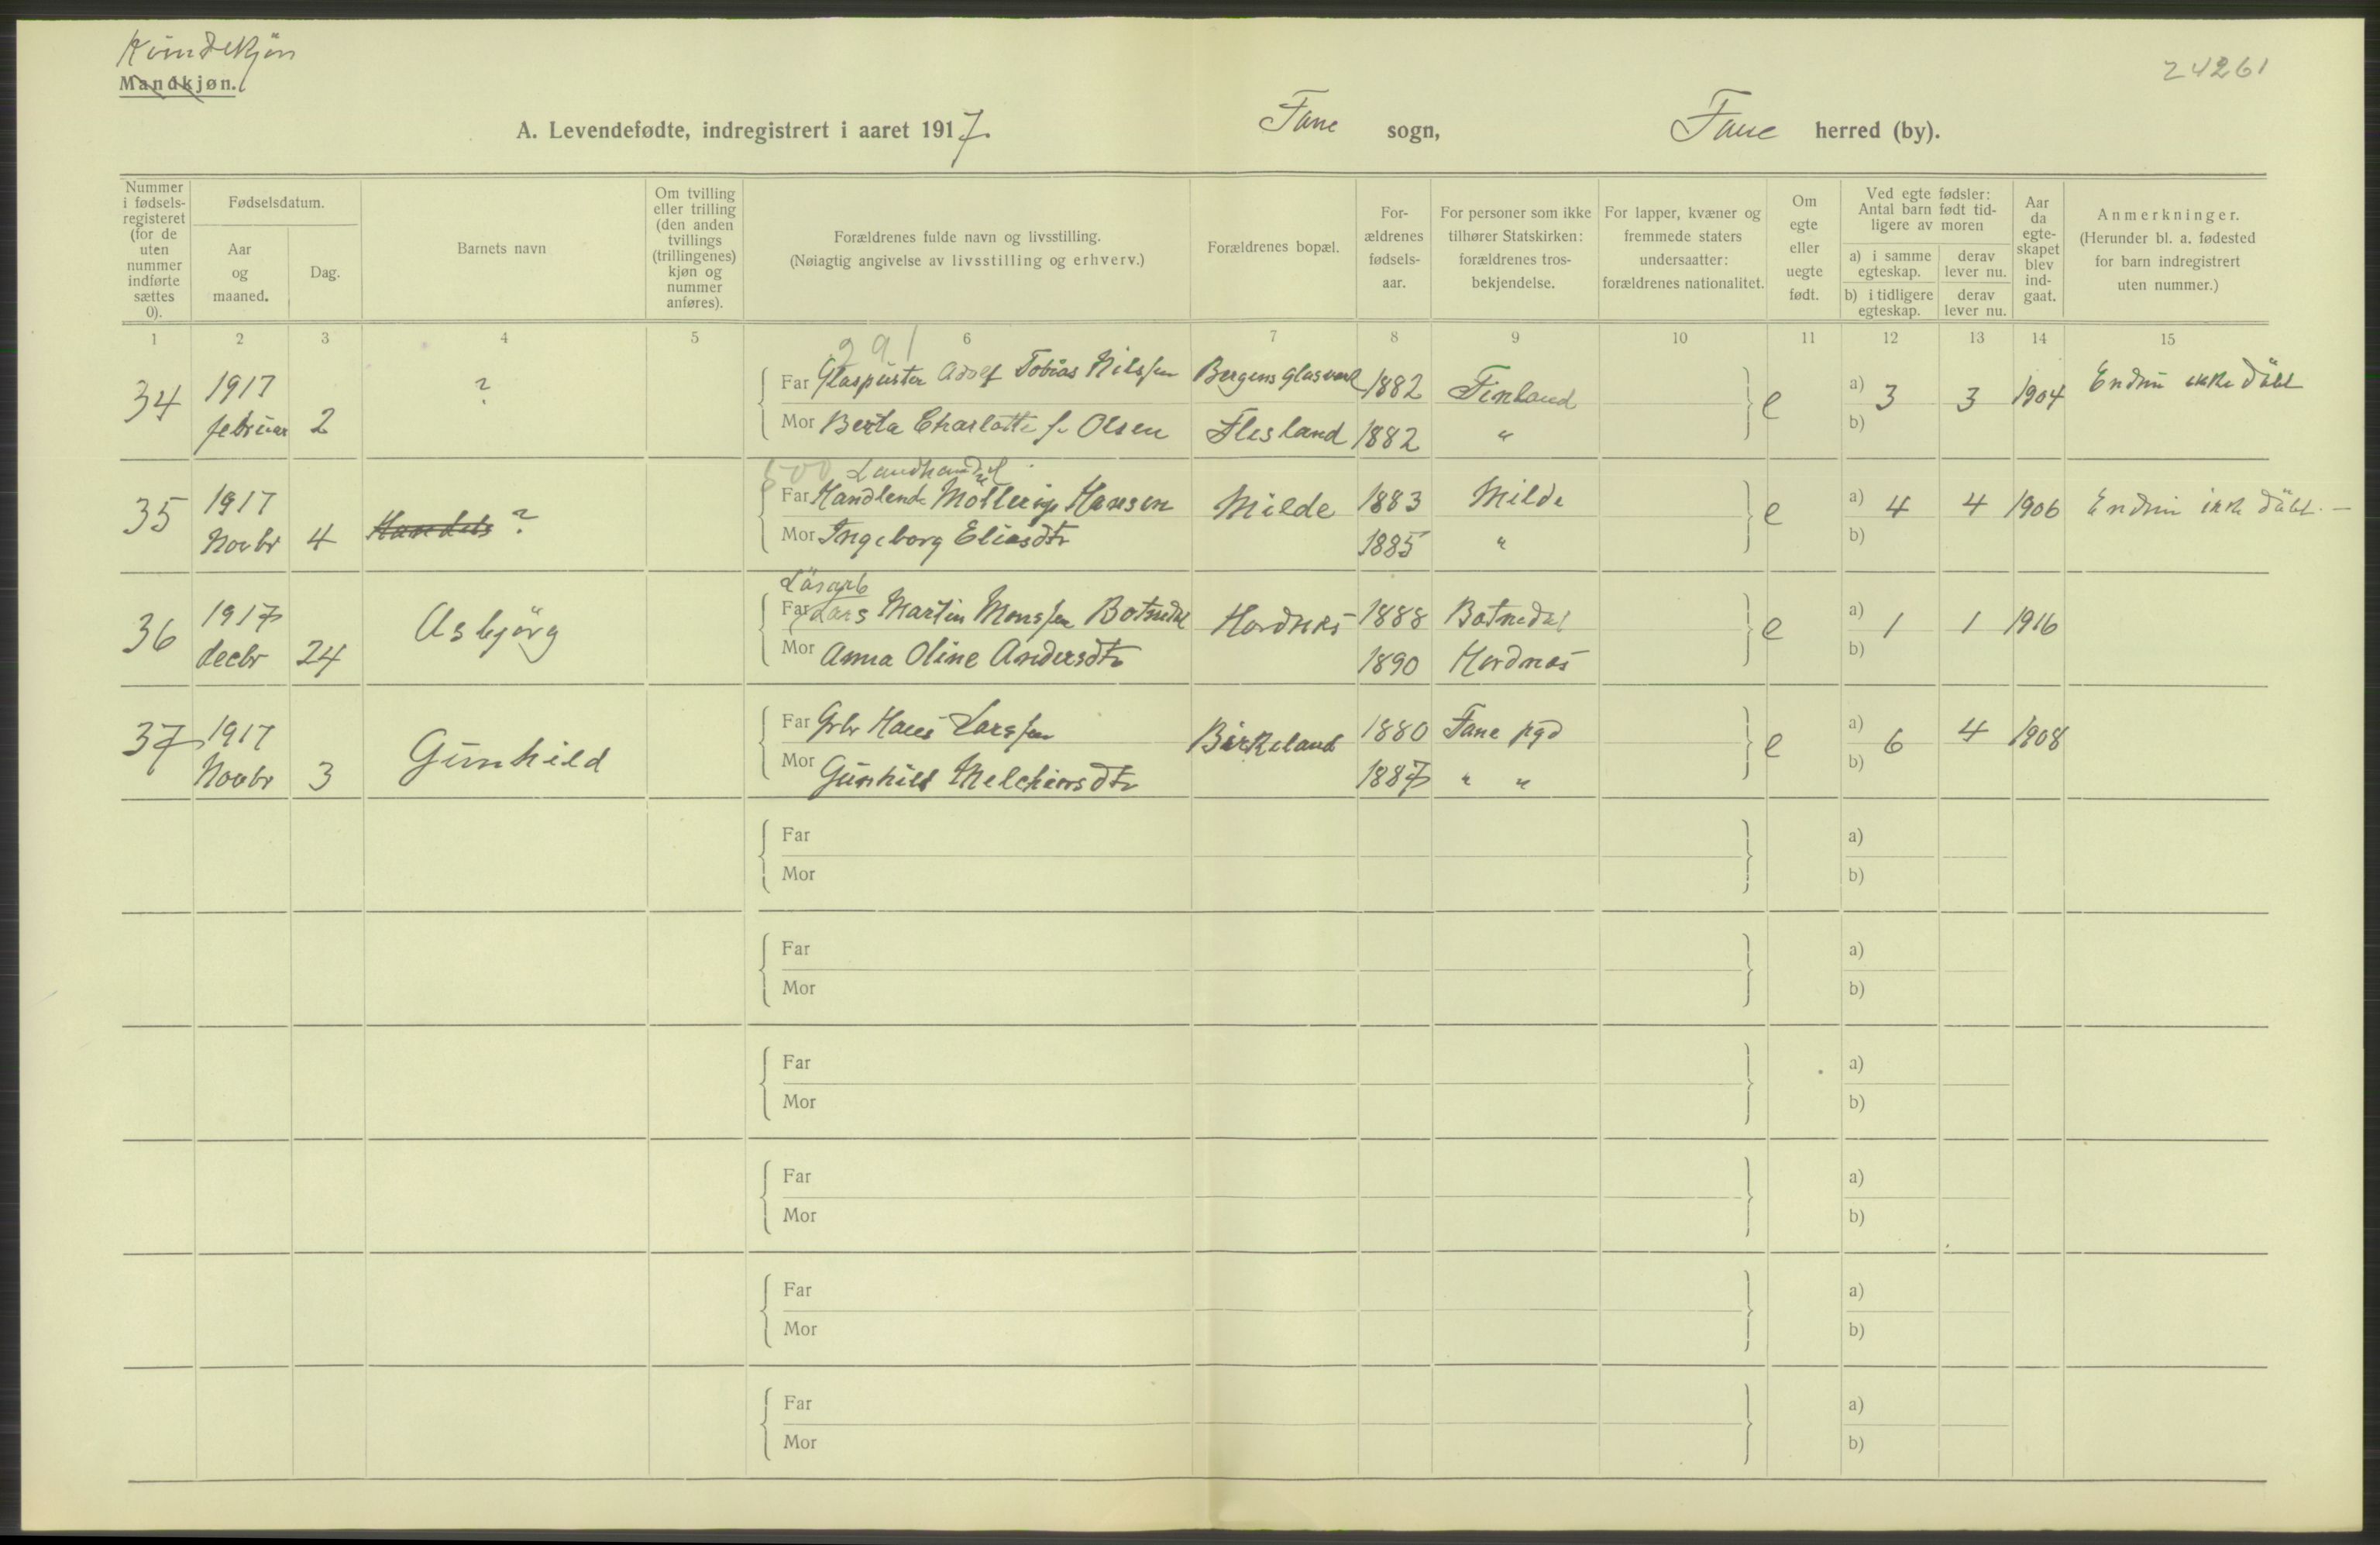 Kvindekjøn
Mandkjøn.
24261
A. Levendefødte, indregistrert i aaret 1917. Fane sogn, Fane herred (by).
Nummer i fødsels-registeret (for de uten nummer indførte sættes 0).
Fødselsdatum.
Aar og maaned.
Dag.
Barnets navn
Om tvilling eller trilling (den anden tvillings (trillingenes) kjøn og nummer anføres).
Forældrenes fulde navn og livsstilling.
(Nøiagtig angivelse av livsstilling og erhverv.)
Forældrenes bopæl.
For-ældrenes fødsels-aar.
For personer som ikke tilhører Statskirken: forældrenes tros-bekjendelse.
For lapper, kvæner og fremmede staters undersaatter: forældrenes nationalitet.
Om egte eller uegte født.
Ved egte fødsler: Antal barn født tid-ligere av moren
a) i samme egteskap.
derav lever nu.
b) i tidligere egteskap.
derav lever nu.
Aar da egte-skapet blev ind-gaat.
Anmerkninger.
(Herunder bl. a. fødested for barn indregistrert uten nummer.)
1 2 3 4 5 6 7 8 9 10 11 12 13 14 15
291
34 1917 februar 2 ? Far Glaspuster Adolf Tobias Nilssen Bergens Glasverk 1882 Finland e a) 3 3 1904 Endnu ikke döbt
Mor Berta Charlotte f. Olsen Flesland 1882 " b)
500 Landhandel
35 1917 Novbr 4 Handels ? Far Handlende Möllerup Hansen Milde 1883 Milde e a) 4 4 1906 Endnu ikke döbt. —
Mor Ingeborg Eliasdtr 1885 " b)
Lösarb
36 1917 decbr 24 Asbjörg Far Lars Martin Monssen Botnedal Hordnes 1888 Botnedal e a) 1 1 1916
Mor Anna Oline Andersdtr 1890 Hordnes b)
37 1917 Novbr 3 Gunhild Far Grbr Hans Larssen Birkeland 1880 Fane pgd e a) 6 4 1908
Mor Gunhild Melchiorsdtr 1887 " " b)
Far a)
Mor b)
Far a)
Mor b)
Far a)
Mor b)
Far a)
Mor b)
Far a)
Mor b)
Far a)
Mor b)